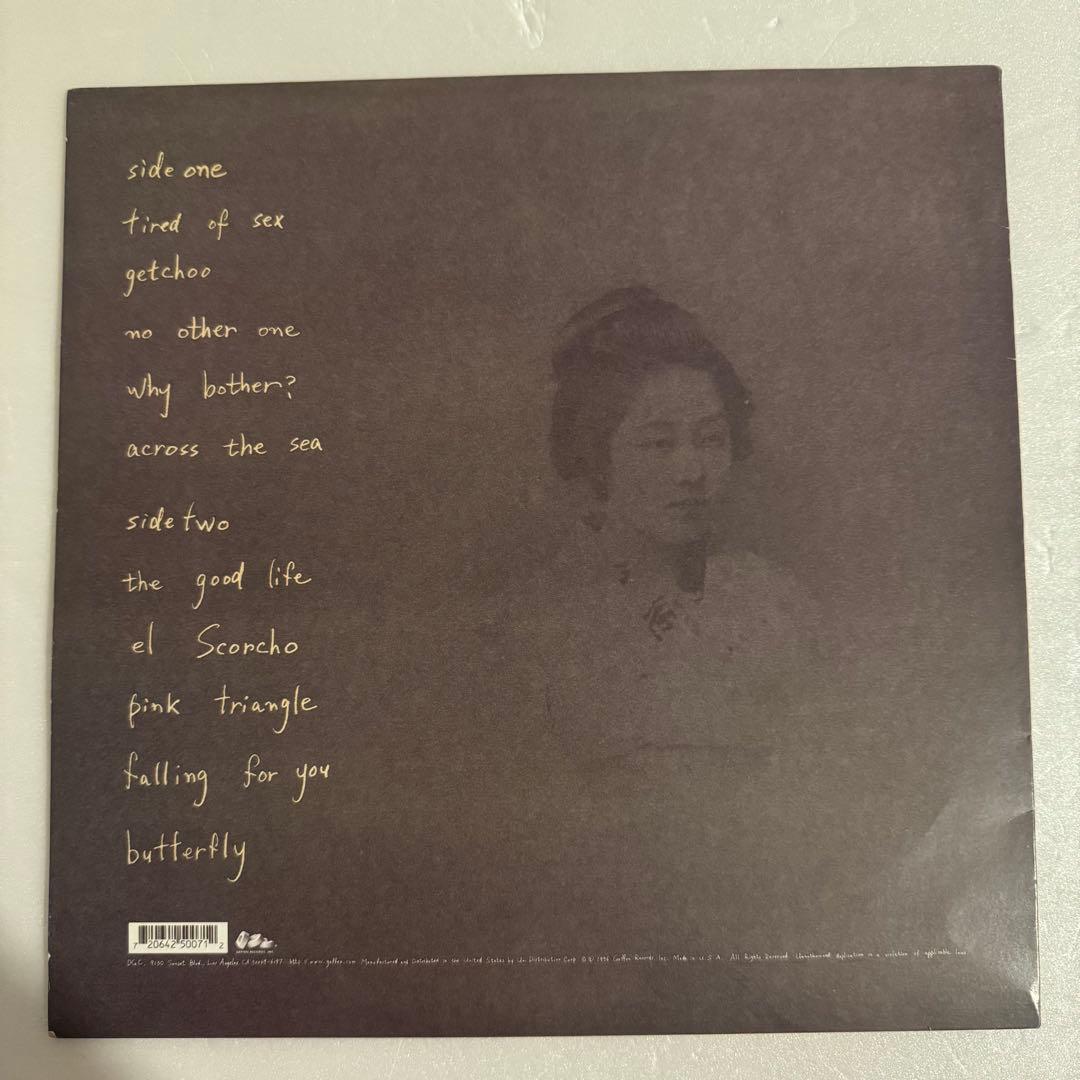 side one
tired of sex
getchoo
no other one
why bother?
across the sea
side two
the good life
el Scorcho
pink triangle
falling for you
butterfly
7 20642 50071 2
DGC, 9130 Sunset Blvd., Los Angeles, CA 90069-6197 http://www.geffen.com Manufactured and Distributed in the United States by Uni Distribution Corp. ℗© 1996 Geffen Records, Inc. Made in U.S.A. All Rights Reserved. Unauthorized duplication is a violation of applicable laws.